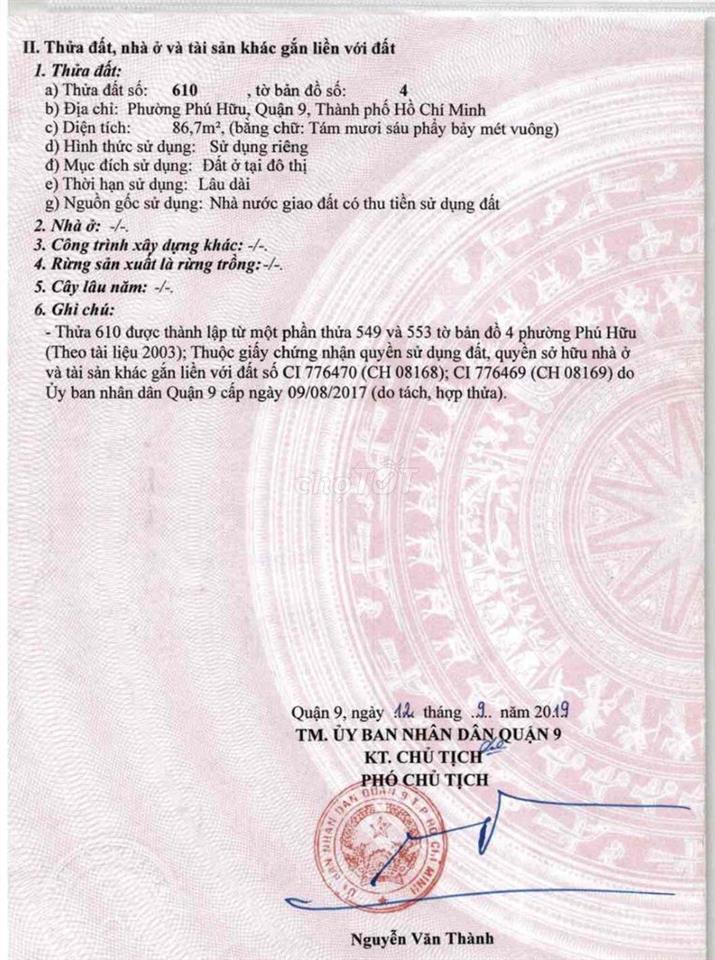 II. Thửa đất, nhà ở và tài sản khác gắn liền với đất
1. Thửa đất:
a) Thửa đất số: 610 , tờ bản đồ số: 4
b) Địa chỉ: Phường Phú Hữu, Quận 9, Thành phố Hồ Chí Minh
c) Diện tích: 86,7m², (bằng chữ: Tám mươi sáu phẩy bảy mét vuông)
d) Hình thức sử dụng: Sử dụng riêng
đ) Mục đích sử dụng: Đất ở tại đô thị
e) Thời hạn sử dụng: Lâu dài
g) Nguồn gốc sử dụng: Nhà nước giao đất có thu tiền sử dụng đất
2. Nhà ở: -/-.
3. Công trình xây dựng khác: -/-.
4. Rừng sản xuất là rừng trồng:-/-.
5. Cây lâu năm: -/-.
6. Ghi chú:
- Thửa 610 được thành lập từ một phần thửa 549 và 553 tờ bản đồ 4 phường Phú Hữu
(Theo tài liệu 2003); Thuộc giấy chứng nhận quyền sử dụng đất, quyền sở hữu nhà ở
và tài sản khác gắn liền với đất số CI 776470 (CH 08168); CI 776469 (CH 08169) do
Ủy ban nhân dân Quận 9 cấp ngày 09/08/2017 (do tách, hợp thửa).
chợTỐT
Quận 9, ngày 12 tháng .9.. năm 2019
TM. ỦY BAN NHÂN DÂN QUẬN 9
KT. CHỦ TỊCH
PHÓ CHỦ TỊCH
ỦY BAN NHÂN DÂN QUẬN 9 T.P HỒ CHÍ MINH
Nguyễn Văn Thành